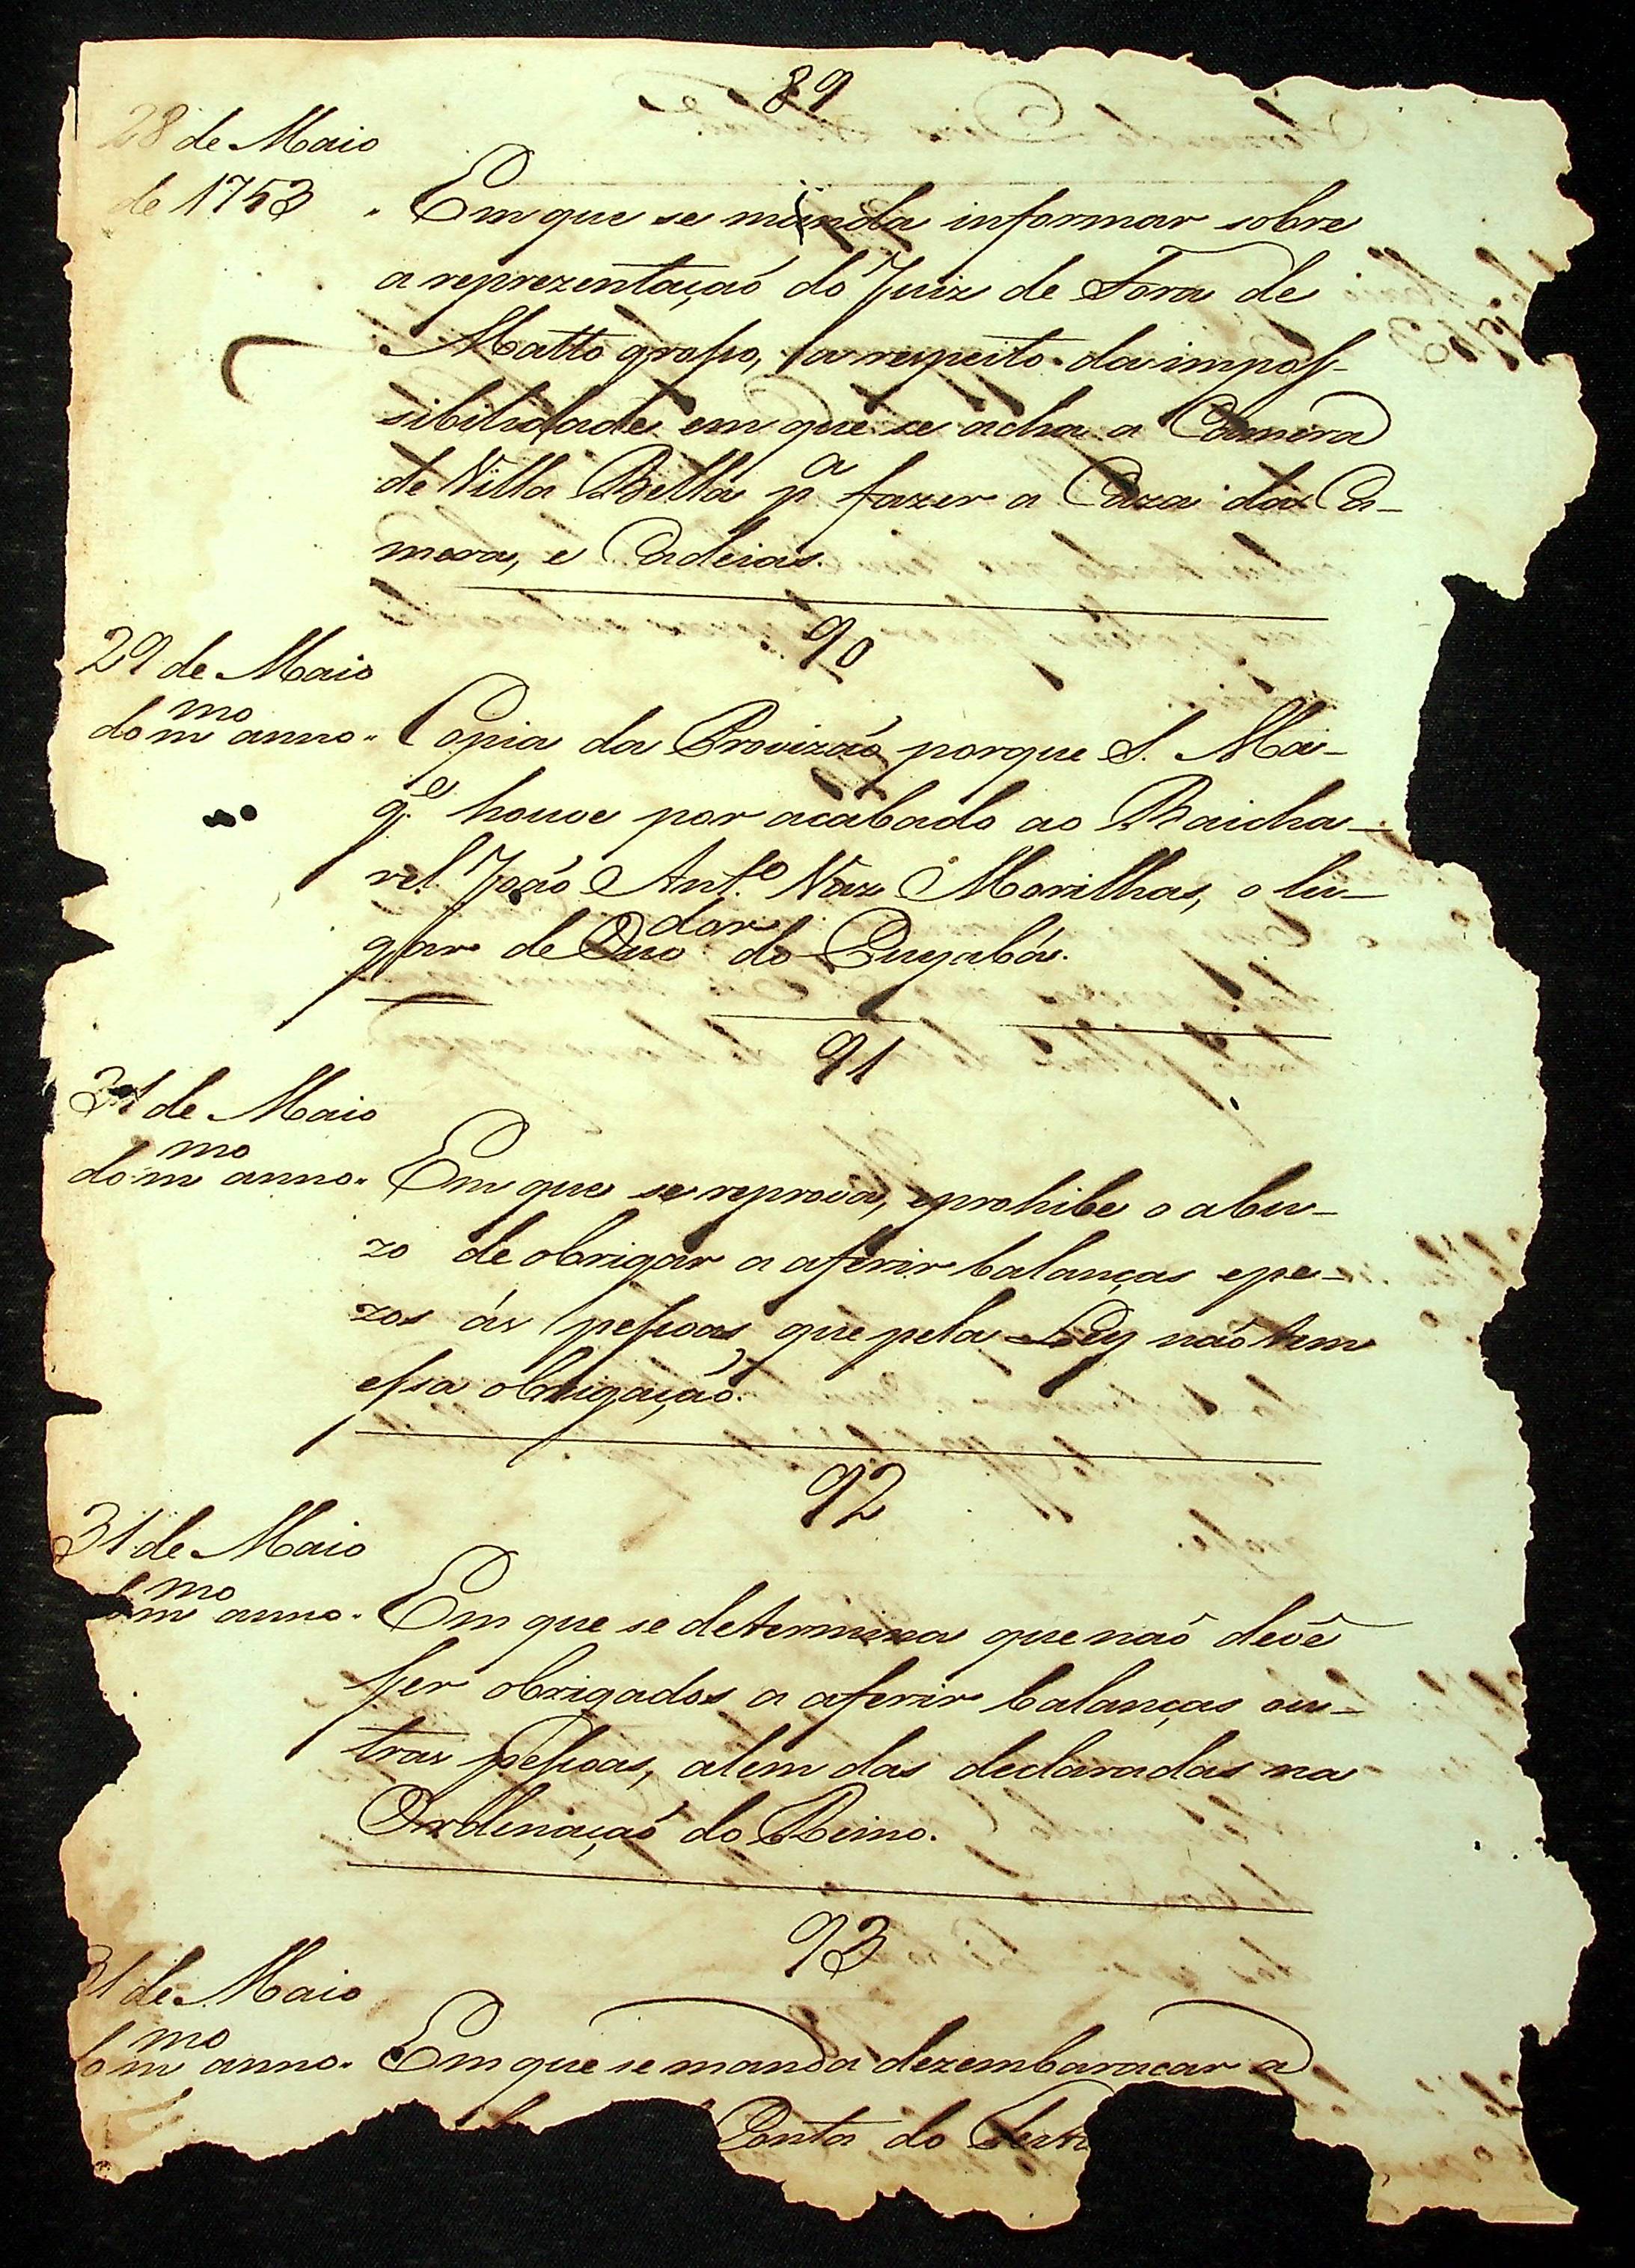 89
28 de Maio
de 1753 " Em que se manda informar sobre
a reprezentaçaõ do Juiz de Fora de
Matto grosso, a respeito da impos-
sibilidade em que se acha a Camera
de Villa Bella pª fazer a Caza da Ca-
mera, e Cadeias.
90
29 de Maio
do mmo anno " Copia da Provizaõ porque S. Ma-
gᵉ houve por acabado ao Baicha-
rel João Antº Vaz Morilhas, o lu-
gar de Ouvdor do Cuyabá.
91
31 de Maio
do mmo anno " Em que se reprova, e prohibe o abu-
zo de obrigar a aferir balanças e pe-
zos ás pessoas que pela Ley naõ tem
essa obrigação.
92
31 de Maio
do mmo anno " Em que se determina que naõ devê
ser obrigados a aferir balanças ou-
tras pessoas, alem das declaradas na
Ordenaçaõ do Reino.
93
31 de Maio
do mmo anno " Em que se manda dezembaracar a
Ponta do